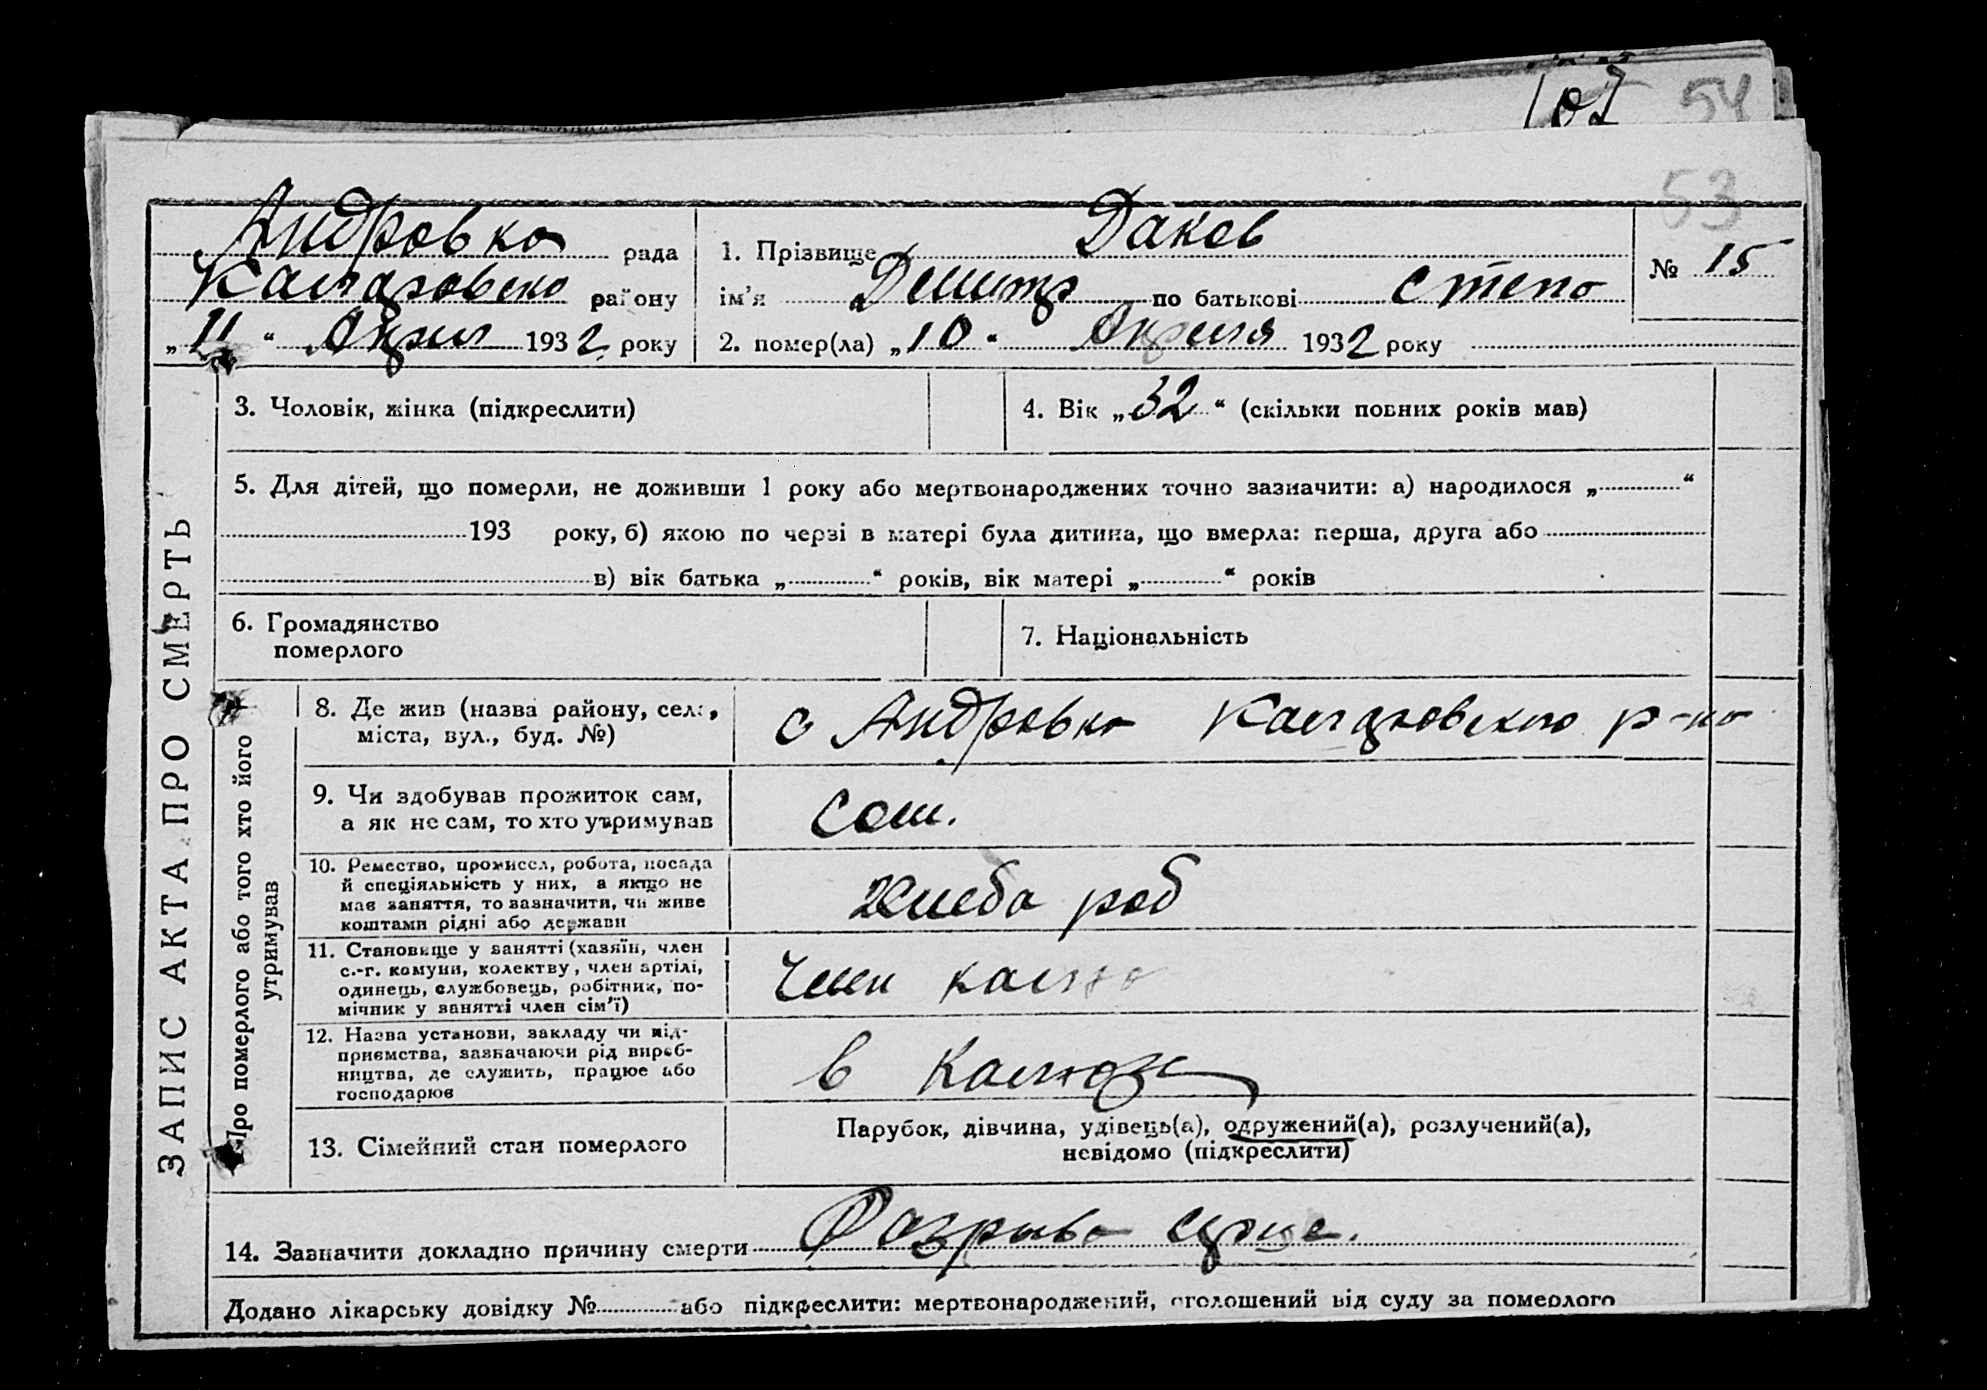 107 54
53
Андровка рада
району
„11“ Апрел 1932 року
1. Прізвище Даков
ім’я по батькові Степо
2. помер(ла) „10“ Апреля 1932 року
№ 15
3. Чоловік, жінка (підкреслити)
4. Вік „32“ (скільки повних років мав)
5. Для дітей, що померли, не доживши 1 року або мертвонароджених точно зазначити: а) народилося „ “
193 року, б) якою по черзі в матері була дитина, що вмерла: перша, друга або
в) вік батька „ “ років, вік матері „ “ років
6. Громадянство
померлого
7. Національність
ЗАПИС АКТА ПРО СМЕРТЬ
Про померлого або того хто його
утримував
8. Де жив (назва району, села,
міста, вул., буд. №)
с Андровка р-на
9. Чи здобував прожиток сам,
а як не сам, то хто утримував
Сам.
10. Ремество, промисел, робота, посада
й спеціяльність у них, а якщо не
має заняття, то зазначити, чи живе
коштами рідні або держави
Хлеба роб
11. Становище у занятті (хазяїн, член
с.-г. комуни, колектву, член артілі,
одинець, службовець, робітник, по-
мічник у занятті член сім’ї)
Член
12. Назва установи, закладу чи під-
приємства, зазначаючи рід вироб-
ництва, де служить, працює або
господарює
в Колхозе
13. Сімейний стан померлого
Парубок, дівчина, удівець(а), одружений(а), розлучений(а),
невідомо (підкреслити)
14. Зазначити докладно причину смерти Разрыва
Додано лікарську довідку № або підкреслити: мертвонароджений, оголошений від суду за померлого